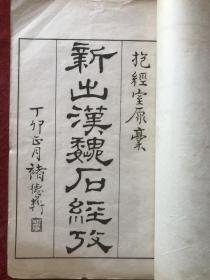 抱經室稾
新出漢魏石經攷
丁卯正月褚德彝